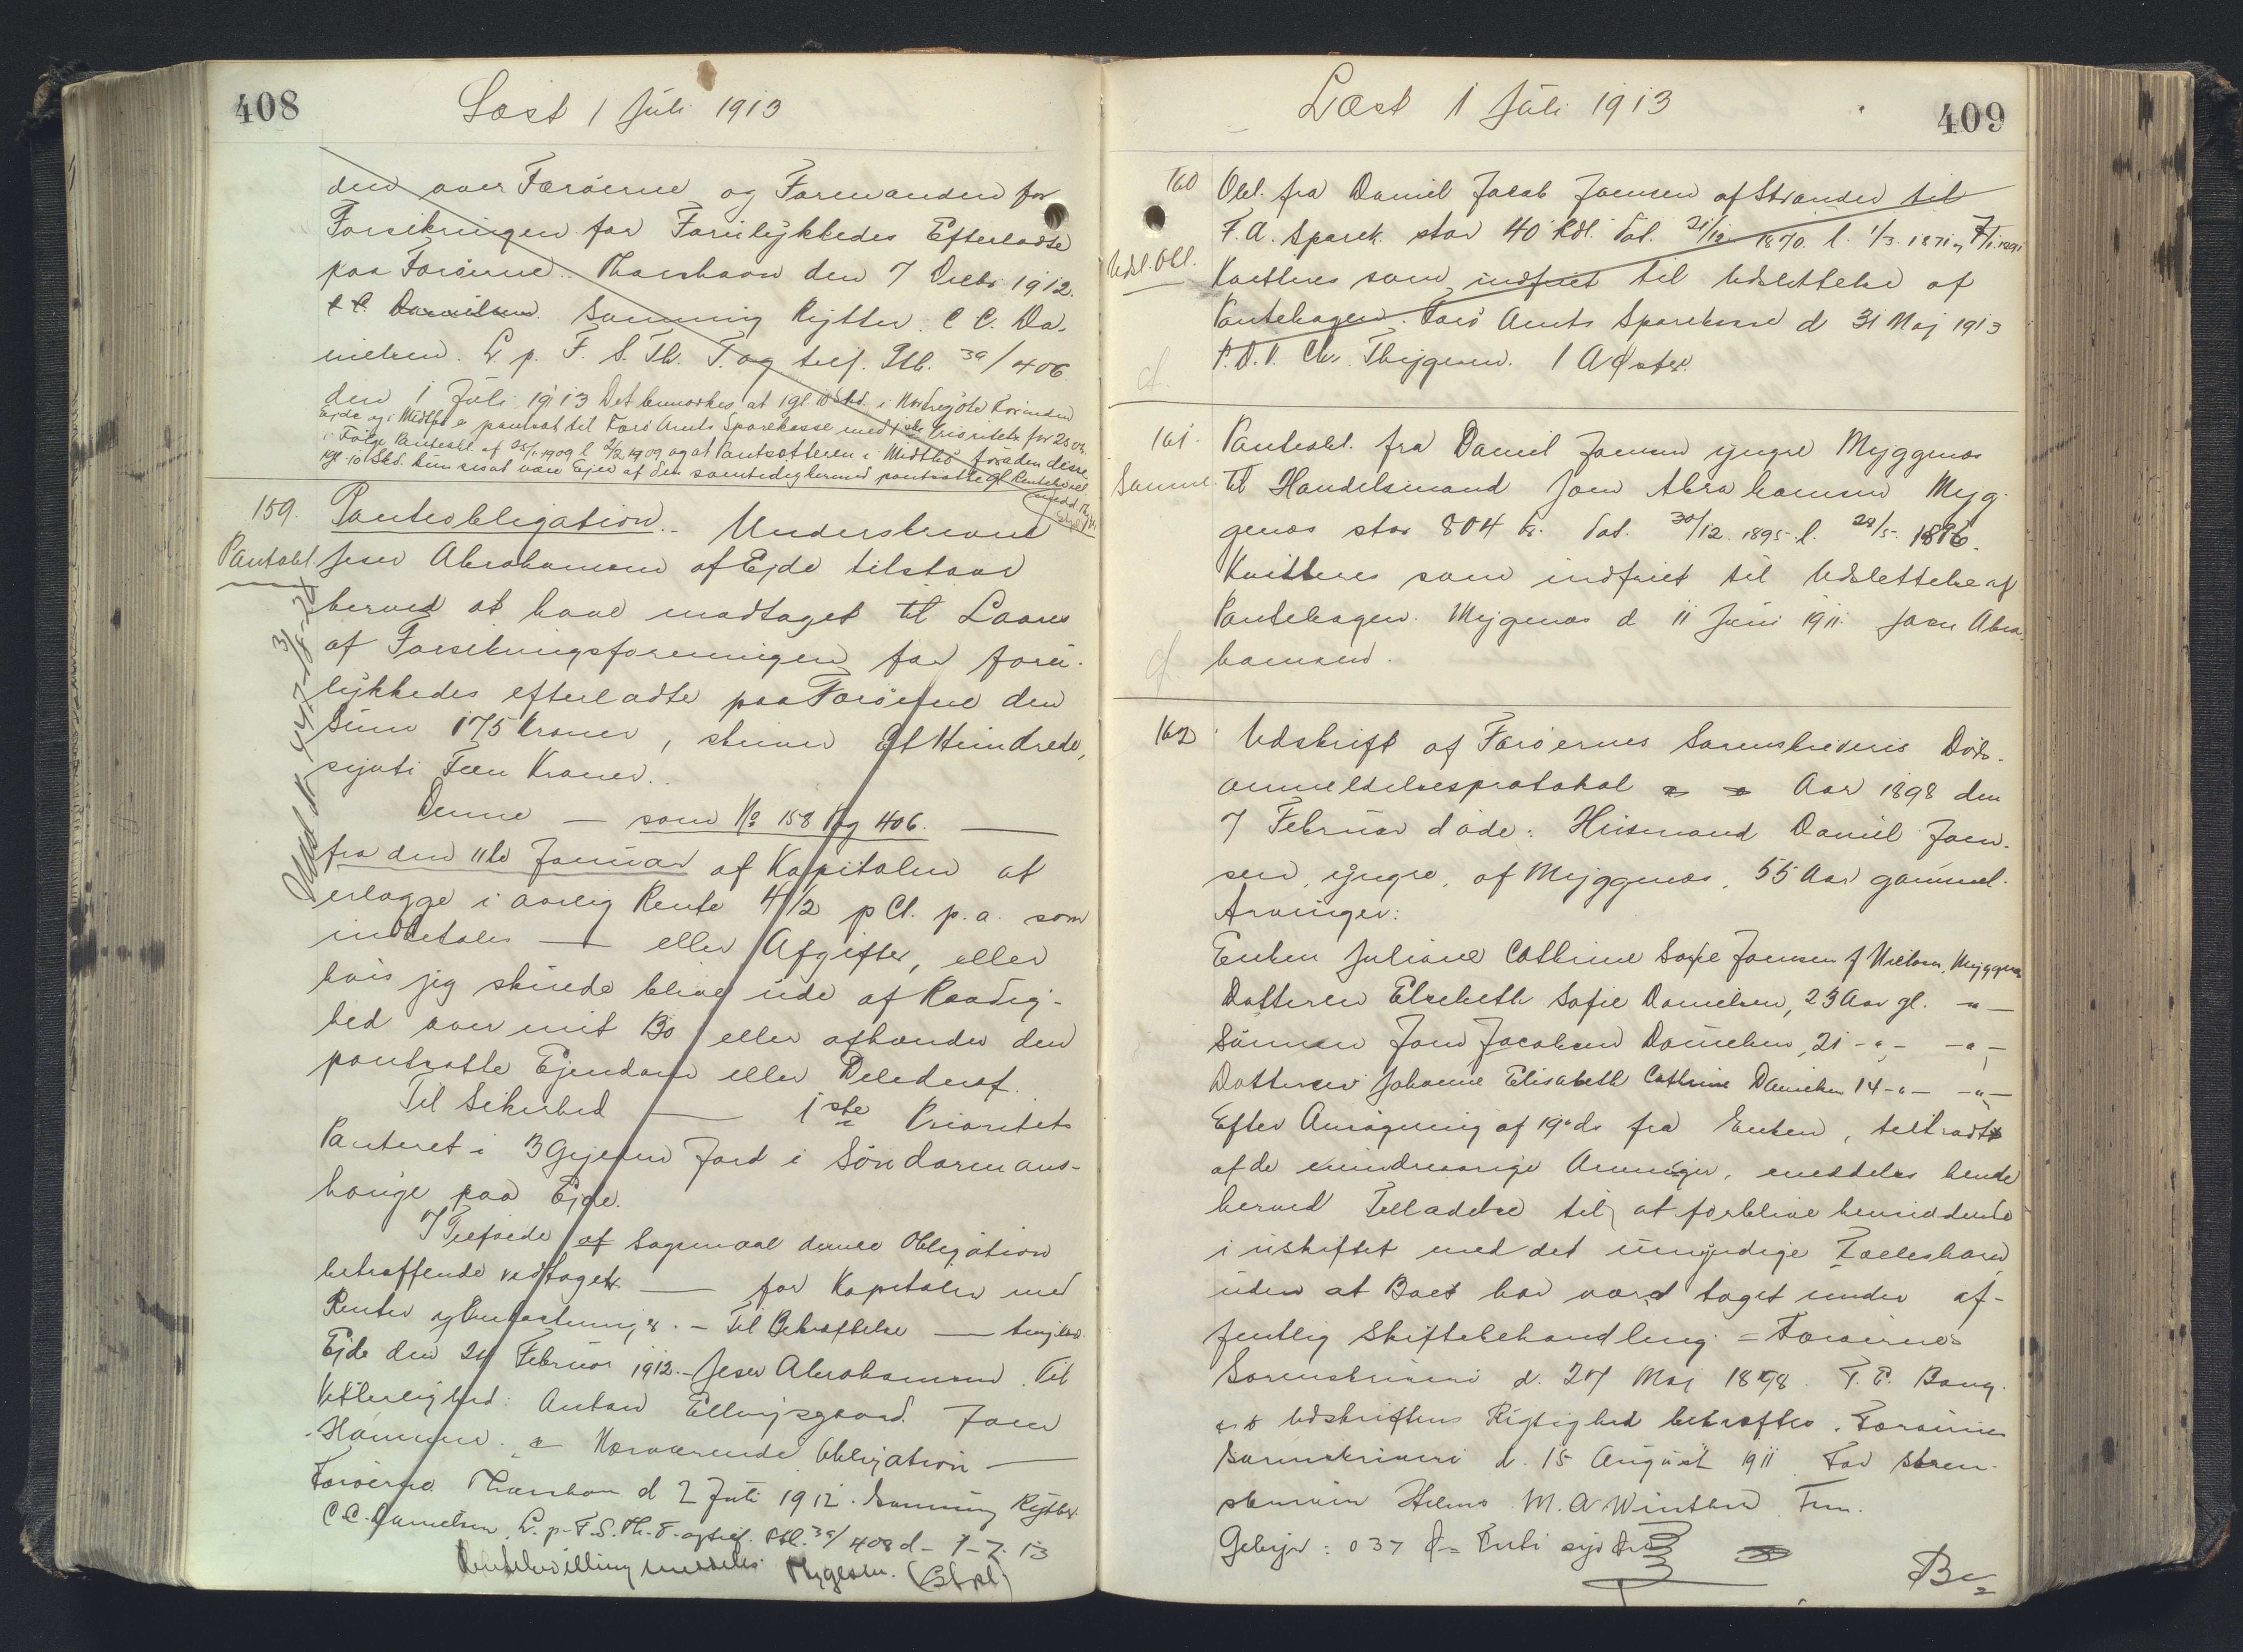 408
Læst 1 Juli 1913
den over Færøerne og Formanden for
Forsikringen for Forulykkedes Efterladte
paa Færøerne. Thorshavn den 7 Decbr 1912.
C. C. Danielsen. Sonning Rytter. C C. Da-
nielsen. L. p. F. S. Th. T. og tilf. Ptb. 39/406
den 1 Juli 1913 Det bemærkes at 1 gl 10 Skd. i Nordregöte
Ejde og i Midthö er pantsat til Færö Amts Sparekasse med 1ste Prioritet for 250 Kr.
i Følge Panteobl. af 25/1 1909 l 2/2 1909 og at Pantsætteren i Midthö foruden disse
1 gl. 10 Skd. kun sesat være Ejer af den samtidig hermed pantsatte gl.
159. Panteobligation. Underskrevne
Pantobl. Jeser Abrahamsen af Ejde tilstaar
herved at have modtaget til Laans
af Forsikringsforeningen for foru-
lykkedes efterladte paa Færöerne den
Sum 175 Kroner, skriver Et Hundrede,
syvti Fem Kroner.
Denne — som No 158 Pag 406. —
fra den 11te Januar af Kapitalen at
erlægge i aarlig Rente 4 1/2 p Ct. p. a. som
indbetales — eller Afgifter, eller
hvis jeg skulde blive ude af Raadig-
hed over mit Bo eller afhænder den
pantsatte Ejendom eller Dele deraf.
Til Sikkerhed — 1ste Prioritets
Panteret i 3 Gyllen Jord i
hauge paa Ejde.
I Tilfælde af Sagsmaal denne Obligation
betræffende vedtages — for Kapitalen med
Renter og Omkostninger. — Til Bekræftelse —
Ejde den 24 Februar 1912. – Jeser Abrahamsen. Til
Vitterlighed: Anton Ellingsgaard. Joen
Hammer. Nærværende Obligation —
Færøerne Thorshavn d 2 Juli 1912. Sonning Rytter.
C. C. Danielsen. L. p. F. S. Th. T. og tilf. Ptb. 39/408 d – 1–7. 13
meddeles Thygesen. (Stpl)
409
Læst 1 Juli 1913
160 Obl. fra Daniel Jacob Joensen af Strander til
F. A. Sparek. stor 40 Rdl. Dat. 21/12 1870. l. 1/3. 1871
Udsl. Obl. Kvitteres som indfriet til Udslettelse af
Pantebogen. Færö Amts Sparekasse d 31 Maj 1913
P. D. V. Chr. Thygesen. I A Öster.
161. Panteobl. fra Daniel Joensen yngre Myggenæs
Samme. til Handelsmand Joen Abrahamsen Myg-
genæs stor 804 Kr. Dat. 30/12. 1895. l. 28/5. 1896.
Kvitteres som indfriet til Udslettelse af
Pantebogen. Mygenæs d 11 Juni 1911. Joen Abra-
hamsen.
162. Udskrift af Færöernes Sorenskriveris Döds-
anmeldelsesprotokol Aar 1898 den
7 Februar döde: Husmand Daniel Joen-
sen, yngre, af Myggenæs, 55 Aar gammel.
Arvinger:
Enken Juliane Cathrine Sofie Joensen f Nielsen, Myggenæs
Datteren Elsebeth Sofie Danielsen, 23 Aar gl. -"-
Sönnen Joen Jacobsen Danielsen, 21 -"- -"-
Datteren Johanne Elisabeth Cathrine Danielsen 14 -"- -"-
Efter Ansögning af 19 ds fra Enken, tiltraadt
af de mindreaarige Arvinger, meddeles hende
herved Tilladelse til at forblive hensiddende
i uskiftet med det umyndige Fællesbarn
uden at Boet har været taget under of-
fentlig Skiftebehandling. = Færöernes
Sorenskriveri d. 27 Maj 1898. T. C. Bang.
Udskriftens Rigtighed bekræftes. Færöernes
Sorenskriveri d. 15 August 1911. For Soren-
skriveren Helms M. A Winther Fm.
Gebyr: 0 37